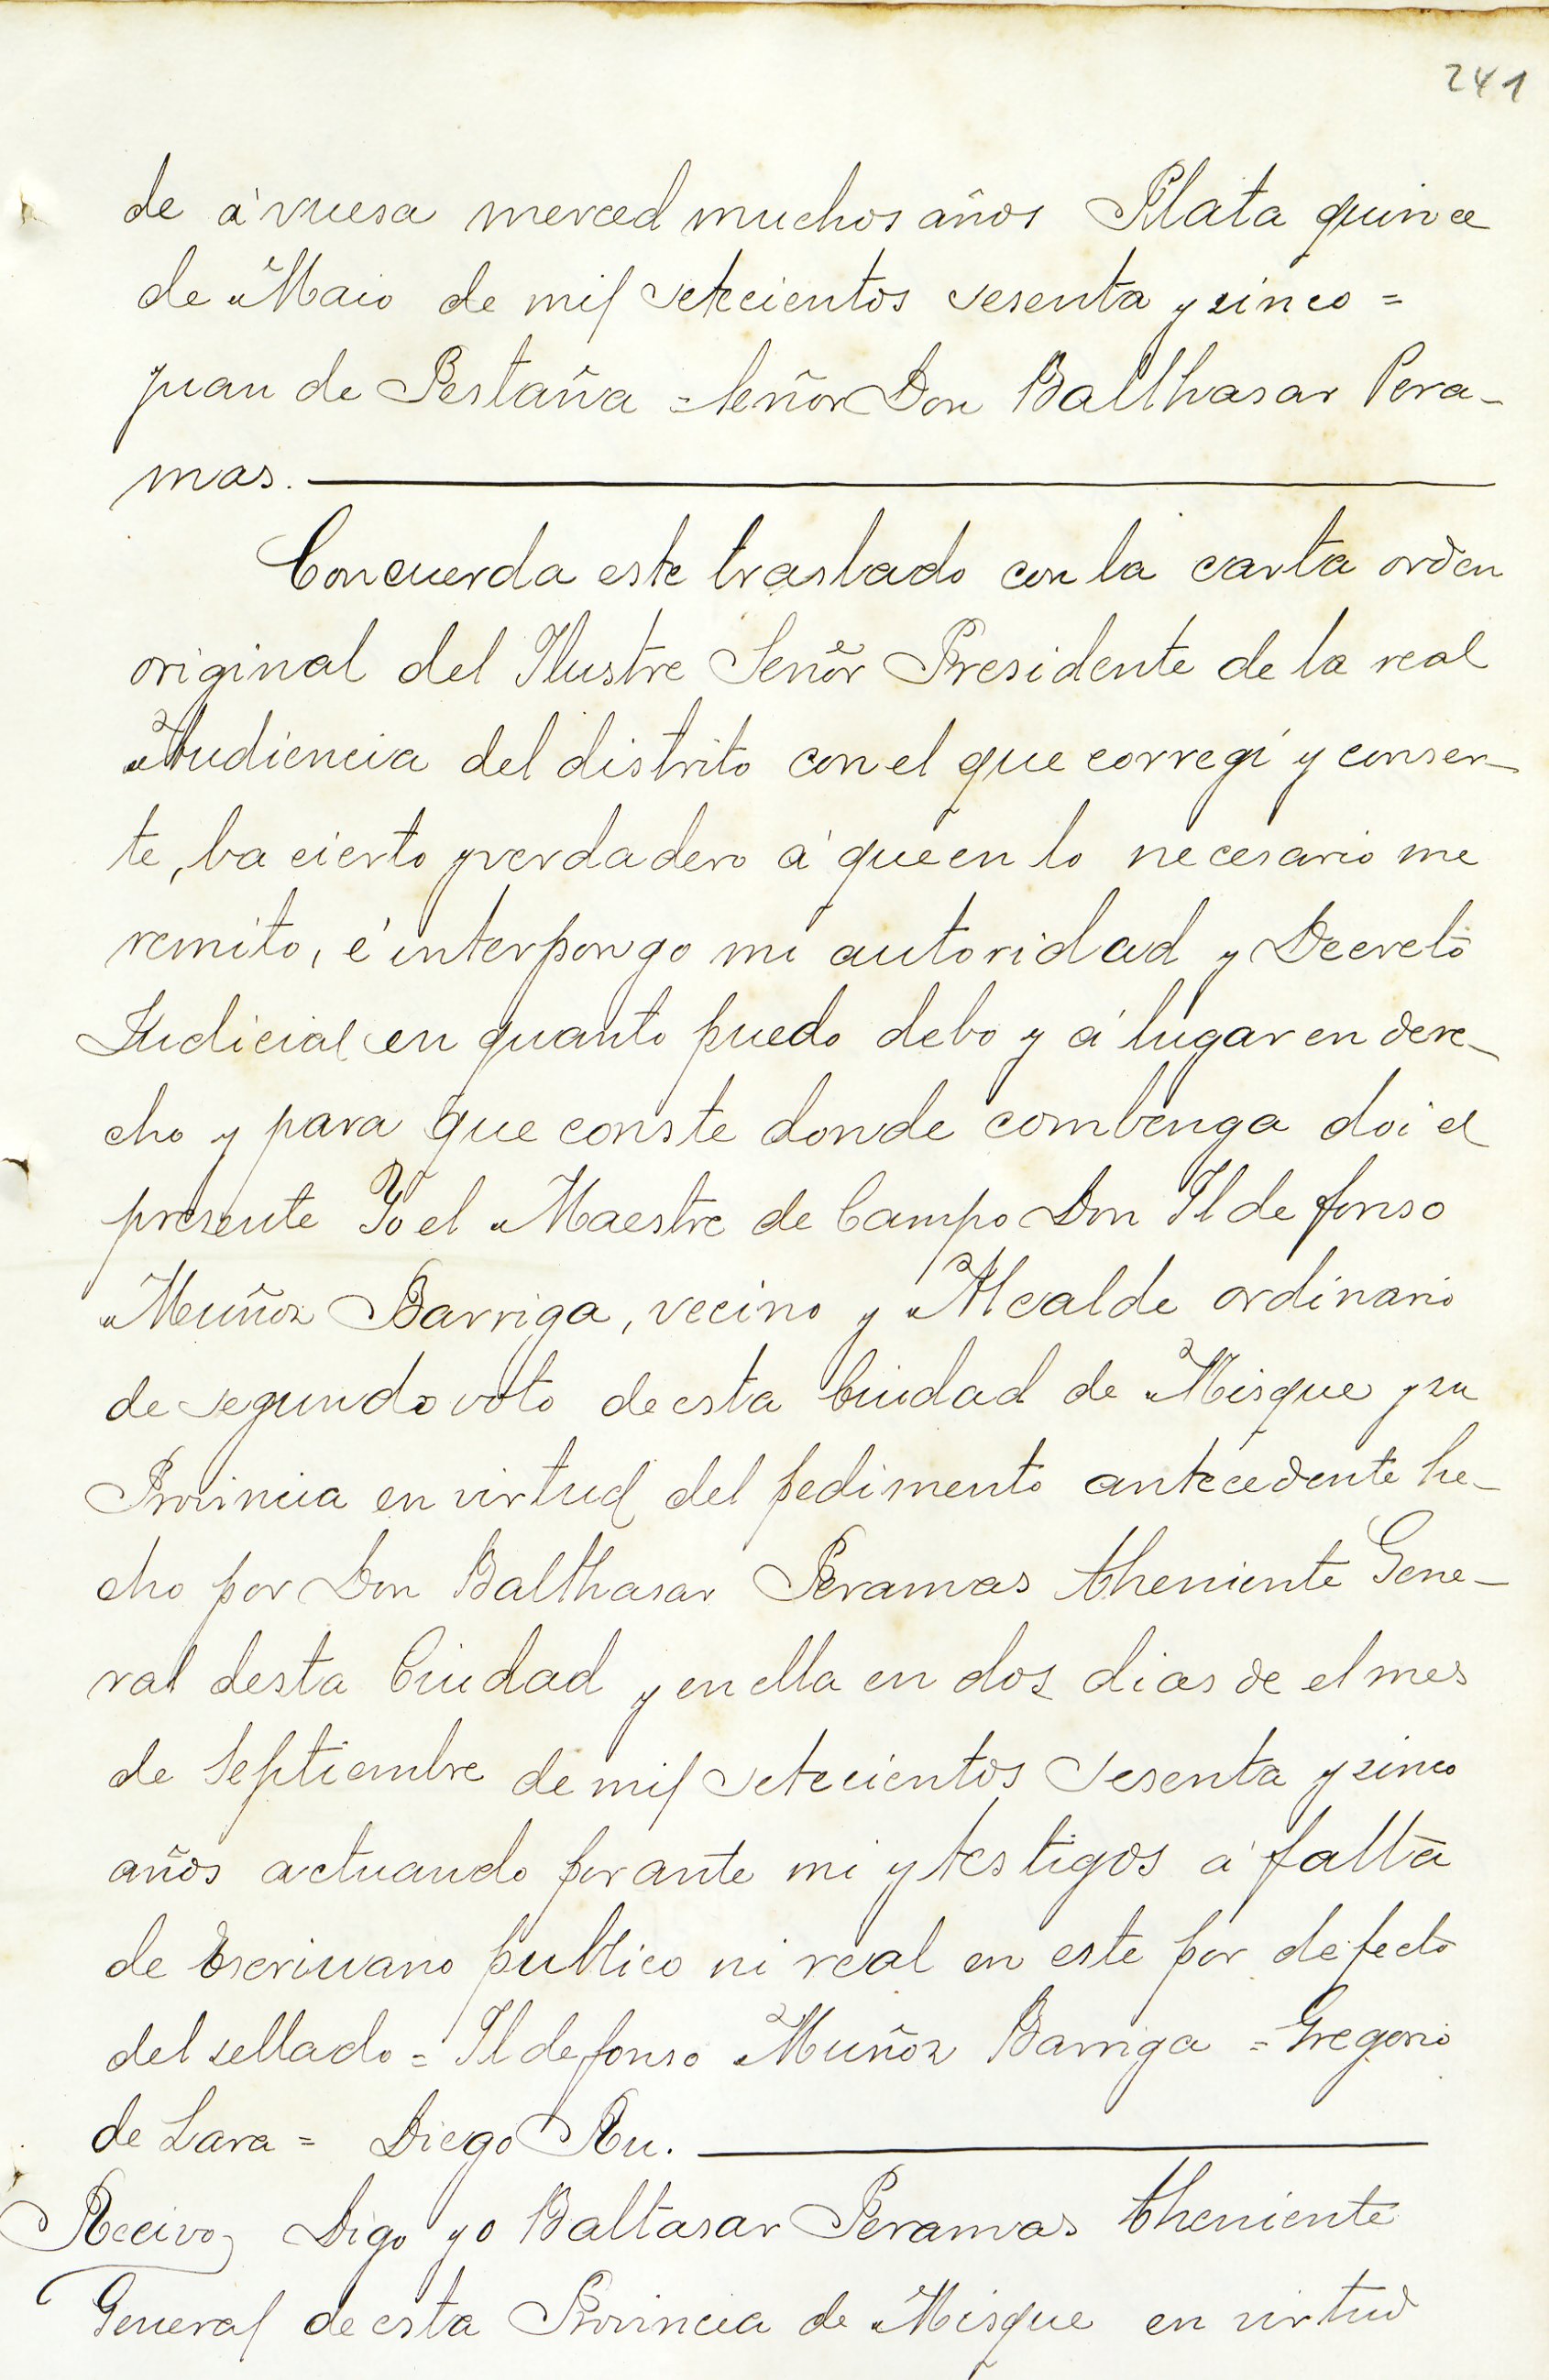 241
de á vuesa merced muchos años Plata quince
de Maio de mil setecientos sesenta y sinco =
Juan de Pestaña = Señor Don Balthasar Pera-
mas.
Concuerda este traslado con la carta orden
original del Ilustre Señor Presidente de la real
Audiencia del distrito con el que corregí y conser-
te, ba cierto y verdadero á que en lo necesario me
remito, é interpongo mi autoridad y Decreto
Judicial en quanto puedo debo y á lugar en dere-
cho y para que conste donde combenga doi el
presente Yo el Maestre de Campo Don Ildefonso
Muñoz Barriga, vecino y Alcalde ordinario
de segundo voto de esta Ciudad de Misque y su
Provincia en virtud del pedimento antecedente he-
cho por Don Balthasar Peramas theniente Gene-
ral desta Ciudad y en ella en dos dias de el mes
de Septiembre de mil setecientos sesenta y sinco
años actuando por ante mi y testigos á falta
de Escriuano publico ni real en este por defecto
del sellado = Ildefonso Muñoz Barriga = Gregorio
de Lara = Diego
Receivo Digo yo Baltasar Peramas theniente
General de esta Provincia de Misque en virtud